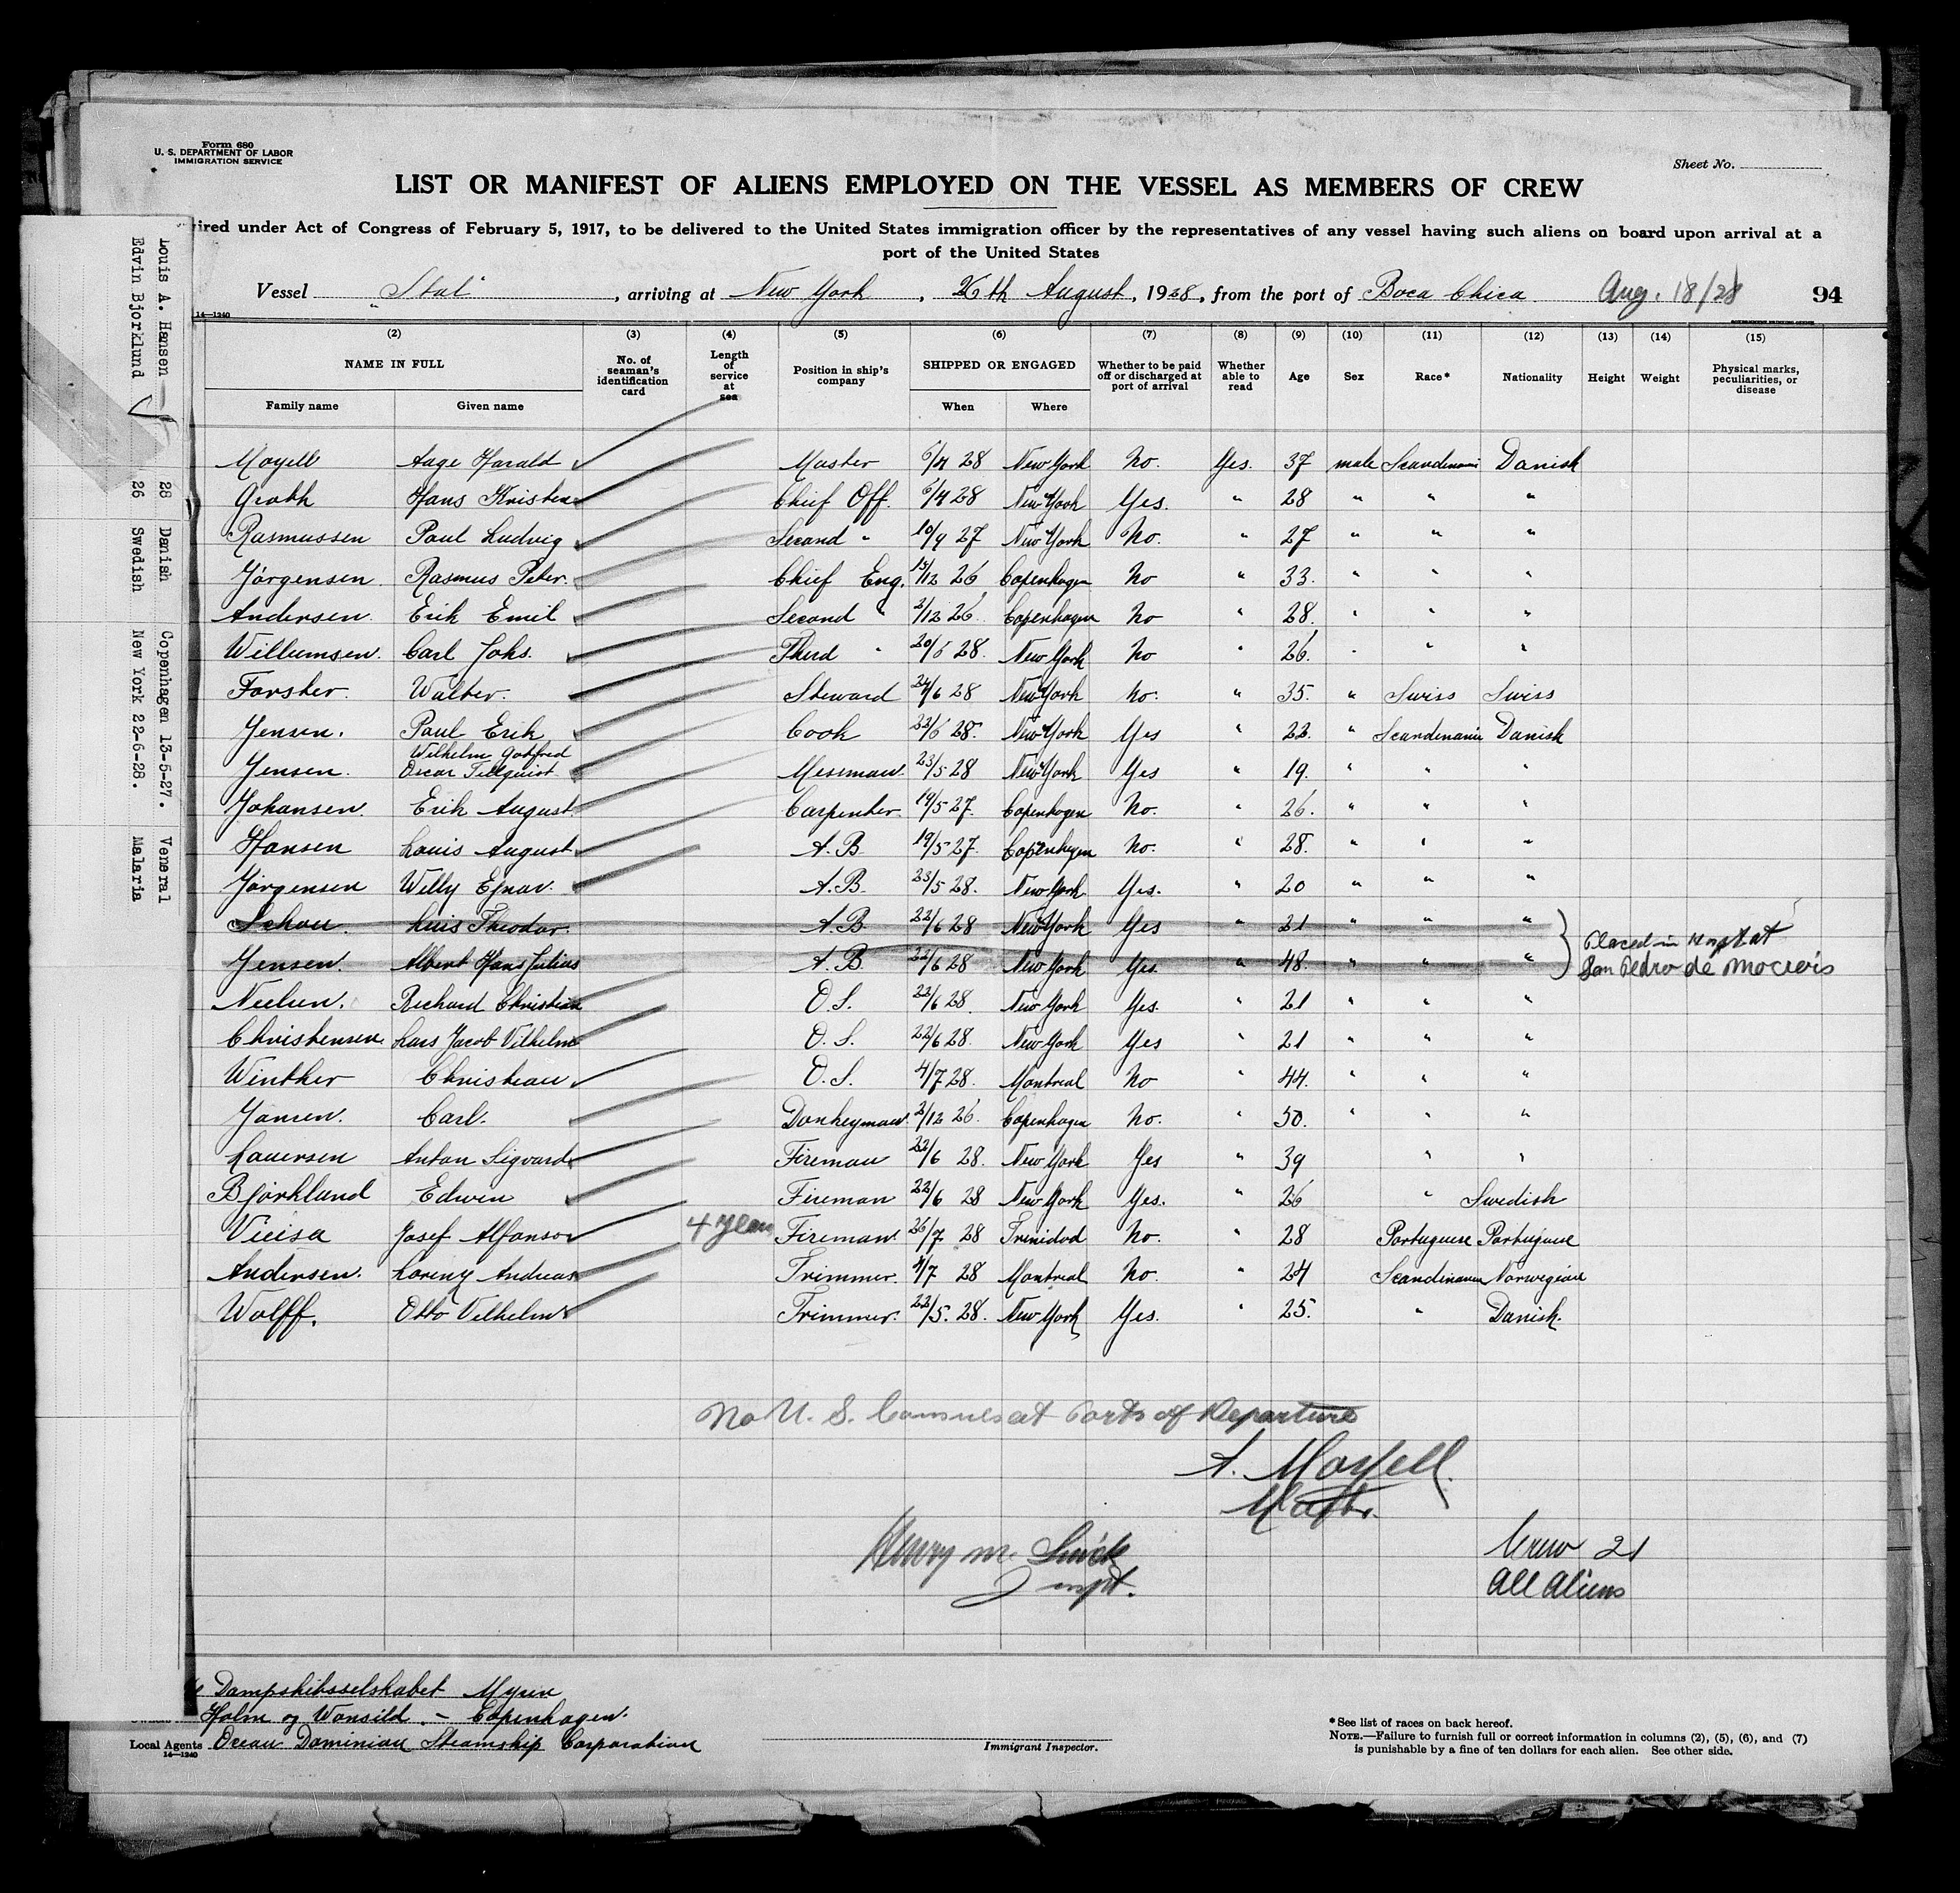 Form 680
U. S. DEPARTMENT OF LABOR
IMMIGRATION SERVICE
Sheet No.
LIST OR MANIFEST OF ALIENS EMPLOYED ON THE VESSEL AS MEMBERS OF CREW
ired under Act of Congress of February 5, 1917, to be delivered to the United States immigration officer by the representatives of any vessel having such aliens on board upon arrival at a
port of the United States
Vessel "Stal", arriving at New York, 26th August, 1928, from the port of Boca Chica Aug. 18/28 94
14—1240
(2) (3) (4) (5) (6) (7) (8) (9) (10) (11) (12) (13) (14) (15)
NAME IN FULL No. of seaman's identification card Length of service at sea Position in ship's company SHIPPED OR ENGAGED Whether to be paid off or discharged at port of arrival Whether able to read Age Sex Race* Nationality Height Weight Physical marks, peculiarities, or disease
Family name Given name When Where
Moyell Aage Harald Master 6/4 28 New York No. Yes. 37 male Danish
Hans Chief Off. 6/4 28 New York Yes. " 28 " " "
Rasmussen Paul Ludvig Second " 10/9 27 New York No. " 27 " " "
Jörgensen. Rasmus Peter. Chief Eng. 13/12 26 Copenhagen No " 33. " " "
Andersen. Erik Emil Second " 2/12 26 Copenhagen No " 28. " " "
Willumsen. Carl Johs. Third " 20/6 28. New York No " 26. " " "
Forster. Walter. Steward 28 New York No. " 35. " Swiss Swiss
Jensen. Paul Erik Cook 22/6 28. New York Yes " 22. " Danish
Wilhelm Godfred
Jensen. Oscar Tillquist Messman. 23/5 28 New York Yes " 19. " " "
Johansen. Erik August. Carpenter. 19/5 27. Copenhagen No. " 26. " " "
Hansen Louis August A.B. 19/5 27. Copenhagen No. " 28. " " "
Jörgensen Willy Ejnar. A.B. 23/5 28. New York Yes. " 20 " " "
Schou. Theodor. A.B. 22/6 28 New York Yes " 21 " " "
Placed in Hospt at
Jensen. Albert Hans Julius A.B. 22/6 28 New York Yes. " 48. " " "
San Pedro de Mocoris
Richard Christian O.S. 22/6 28 New York Yes. " 21 " " "
Christensen. Lars Jacob Vilhelm O.S. 22/6 28. New York Yes " 21 " " "
Winther Christian O.S. 4/7 28. Montreal No " 44. " " "
Jansen. Carl. Donkeyman. 2/12 26. Copenhagen No. " 50. " " "
Laursen Anton Sigvard Fireman 22/6 28. New York Yes " 39 " "
Bjorklund Edwin Fireman 22/6 28 New York Yes. " 26 " Swedish
Josef Alfonso 4 years Fireman. 26/7 28 Trinidad No. " 28 Portuguese Portuguese
Andersen. Lorenz Andreas Trimmer. 4/7 28 Montreal No. " 24 Norwegian
Wolff. Otto Vilhelm Trimmer. 22/5. 28. New York Yes. " 25. " Danish.
No U. S. Consuls at Ports of Departure
A. Moyell.
Master.
Henry M.
Inspt.
Crew 21
All Aliens
Dampskibsselskabet Myren
Holm og Wonsild. – Copenhagen.
Local Agents Ocean Dominion Steamship Corporation
14—1240
Immigrant Inspector.
*See list of races on back hereof.
NOTE.—Failure to furnish full or correct information in columns (2), (5), (6), and (7)
is punishable by a fine of ten dollars for each alien. See other side.
Louis A. Hansen 28 Danish Copenhagen 13-5-27. Veneral
Edvin Bjorklund 26 Swedish New York 22-6-28. Malaria